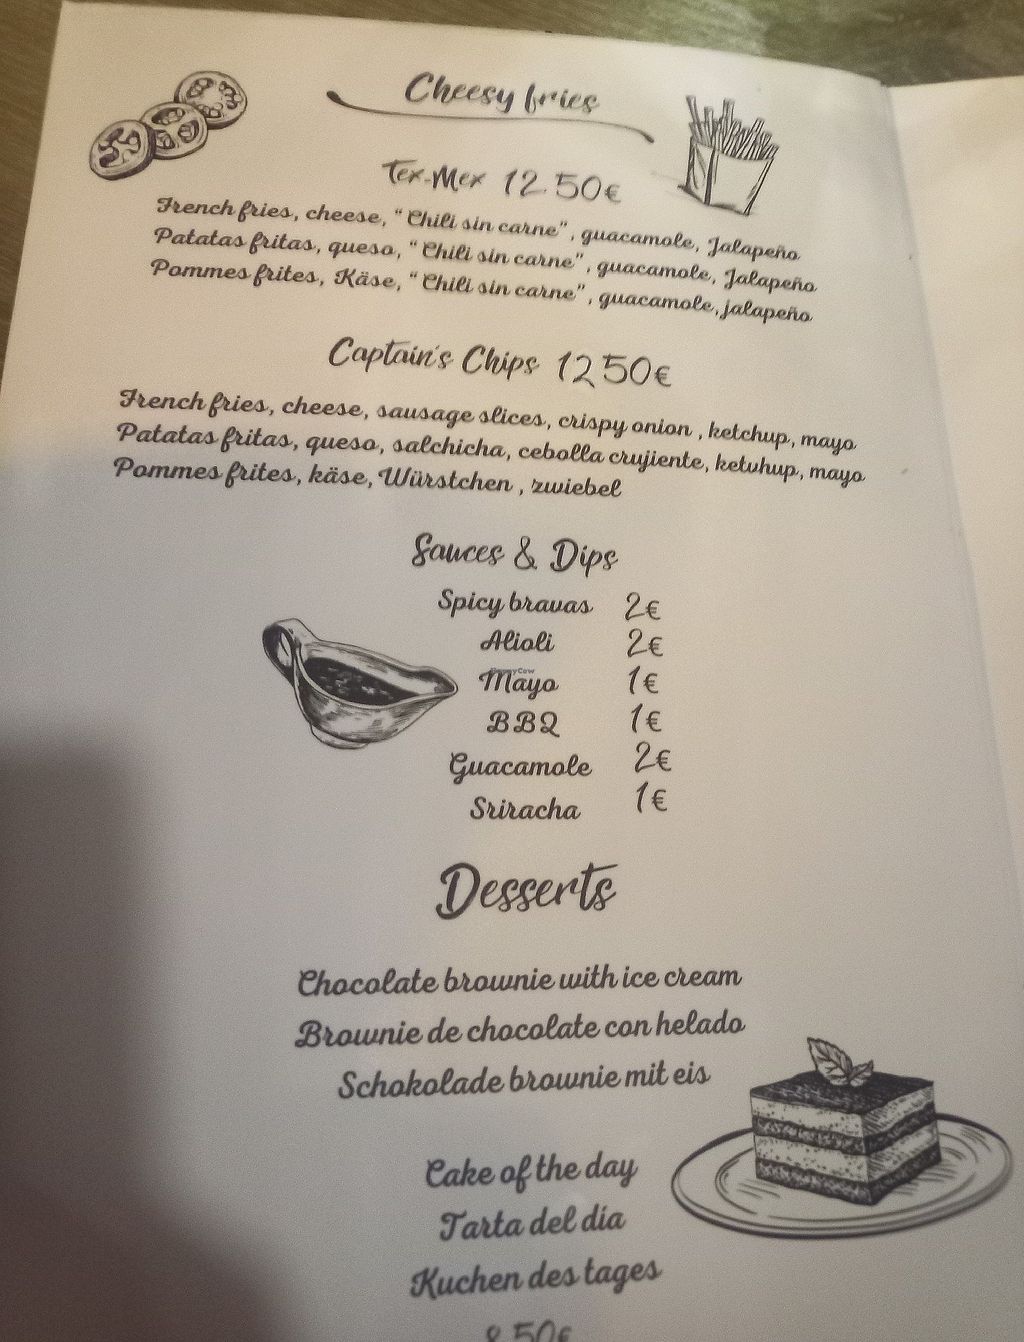 Cheesy fries
Tex-Mex 12.50€
French fries, cheese, “Chili sin carne”, guacamole, Jalapeño
Patatas fritas, queso, “Chili sin carne”, guacamole, Jalapeño
Pommes frites, Käse, “Chili sin carne”, guacamole, jalapeño
Captain's Chips 1250€
French fries, cheese, sausage slices, crispy onion , ketchup, mayo
Patatas fritas, queso, salchicha, cebolla crujiente, ketvhup, mayo
Pommes frites, käse, Würstchen , zwiebel
Sauces & Dips
Spicy bravas 2€
Alioli 2€
HappyCow
Mayo 1€
BBQ 1€
Guacamole 2€
Sriracha 1€
Desserts
Chocolate brownie with ice cream
Brownie de chocolate con helado
Schokolade brownie mit eis
Cake of the day
Tarta del día
Kuchen des tages
8,50€